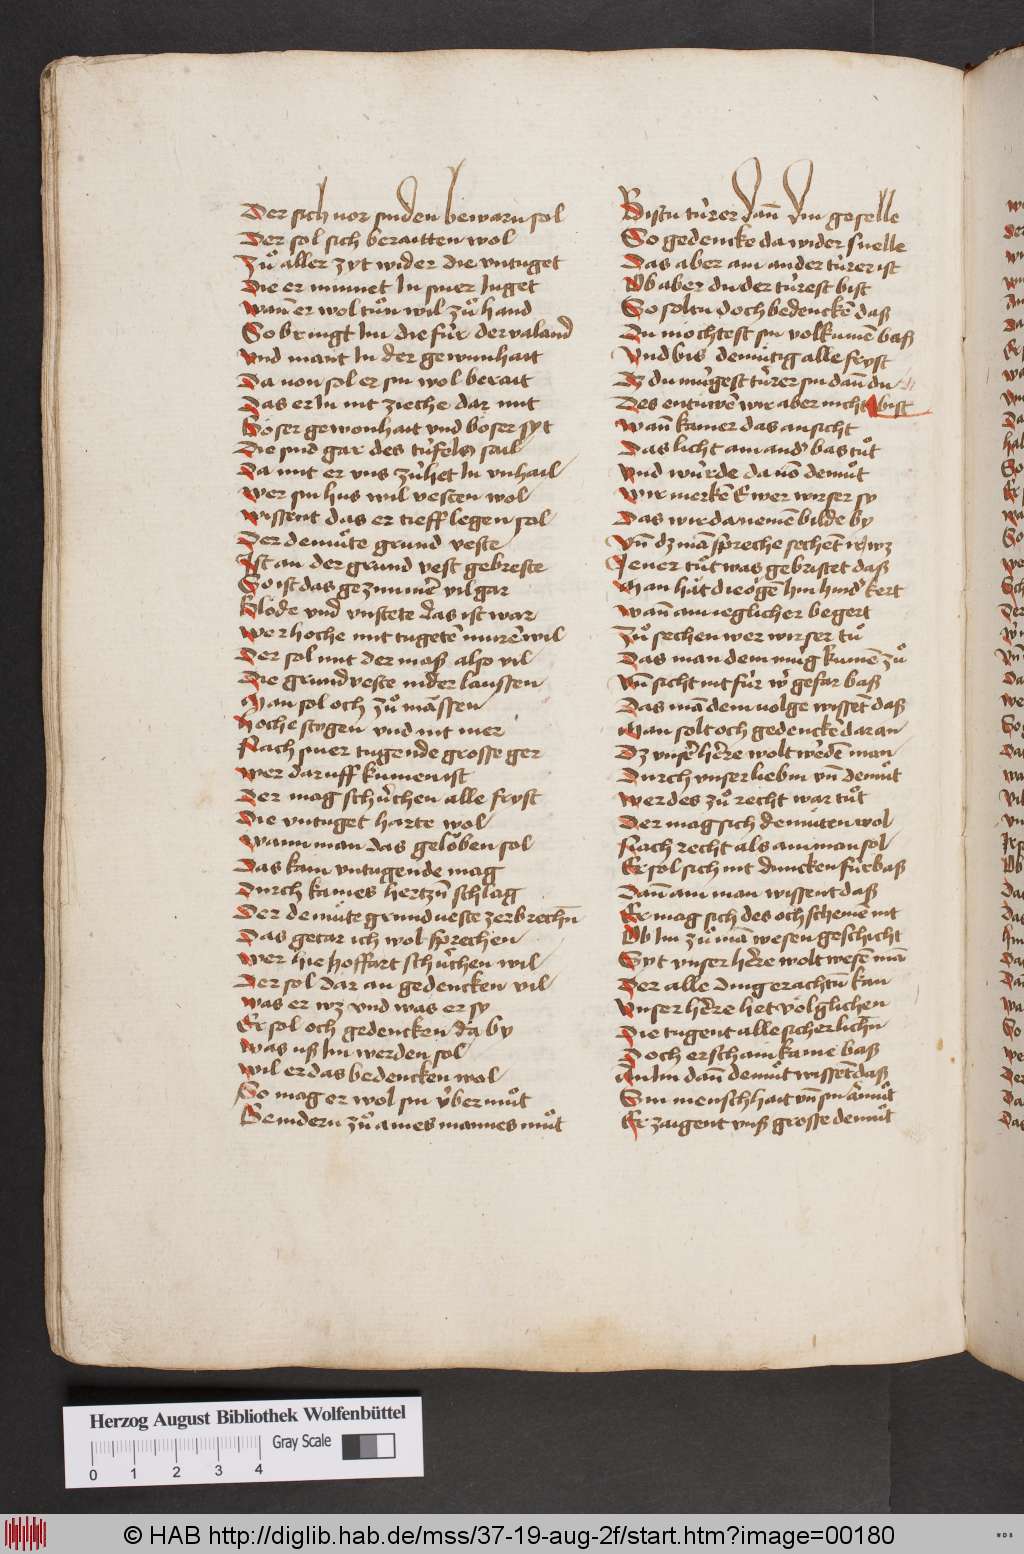 Der sich vor sünden bewarn sol
Der sol sich beraitten wol
Zuͦ aller zyt wider die vntuget
Die er minnet In siner Iuget
wañ er wol tuͦn wil zuͦ hand
So bringt Im die für der valand
vnd mant In der gewonhait
Da von sol er sin wol berait
Das er In nit zieche dar mit
Böser gewonhait vnd böser syt
Die sind gar des tüfels sail
Da mit er vns zühet In vnhail
wer sin hus wil vesten wol
wissent das er tieff legen sol
Der demuͤte grund veste
Ist an der grund vest gebreste
So ist das gezimmer̃ vil gar
Blöde vnd vnstete das ist war
wer hoche mit tugetē murē wil
Der sol mit der maß also vil
Die grundveste nider laussen
Man sol och zuͦ mässen
Hoche stygen vnd nit mer
Nach siner tugende grosse ger
wer daruff kumen ist
Der mag schüchen alle fryst
Die vntuget harte wol
wann man das geloͧben sol
Das kain vntugende mag
Durch kaines hertzn̄ schlag
Der demuͤte grundueste zerbrechn̄
Das getar ich wol sprechen
wer hie hoffart schüchen wil
Der sol dar an gedencken vil
was er wz vnd was er sy
Er sol och gedencken da by
was uß Im werden sol
wil er das bedencken wol
So mag er wol sin übermuͦt
Beindern zuͦ aines mannes muͦt
Bistu türer dañ din geselle
So gedencke da wider snelle
Das aber ain ander türer ist
Ob aber du der türest bist
So soltu doch bedenckē daß
Du mochtest sin volkumē baß
Vnd bis demütig alle fryst
Dz du mügest türer sin dañ du
Des entüwē wir aber nicht bist
wañ kainer das ansicht
Das licht ain and' bas tuͦt
vnd würde da vō demuͦt
wir merkē Ewer wirser sy
Das wir da nemē bilde by
Vn̄ dz mā spreche sechēt wz
Jener tuͦt was gebristet daß
Man hät die ogē hin hind' kert
wañ ain ieglicher begert
Zuͦ sechen wer wirser tuͦ
Das man dem mug kumē zuͦ
Vn̄ sicht nit für w' gefar baß
Das mā dem volge wissēt daß
Man solt och gedenckē daran
Dz vnser h̄ere wolt werdē man
Durch vnser liebin vn̄ demuͦt
wer des zuͦ recht war tuͦt
Der mag sich demüten wol
Nach recht als ain man sol
Er sol sich nit duncken fürbaß
Dañ ain man wissent daß
Er mag sich des och schemē nit
Ob Im zuͦ mā wesen geschicht
Syt vnser h̄ere wolt wesē mā
Der alle ding erachtn̄ kan
Vnser h̄ere het völglichen
Die tugent alle sicherlichn̄
Doch erschain kaine baß
An Im dañ demuͦt wissēt daß
Sin menschhait vn̄ sin armuͦt
Er zaigent vnß grosse demuͦt
Herzog August Bibliothek Wolfenbüttel
Gray Scale
0 1 2 3 4
© HAB http://diglib.hab.de/mss/37-19-aug-2f/start.htm?image=00180